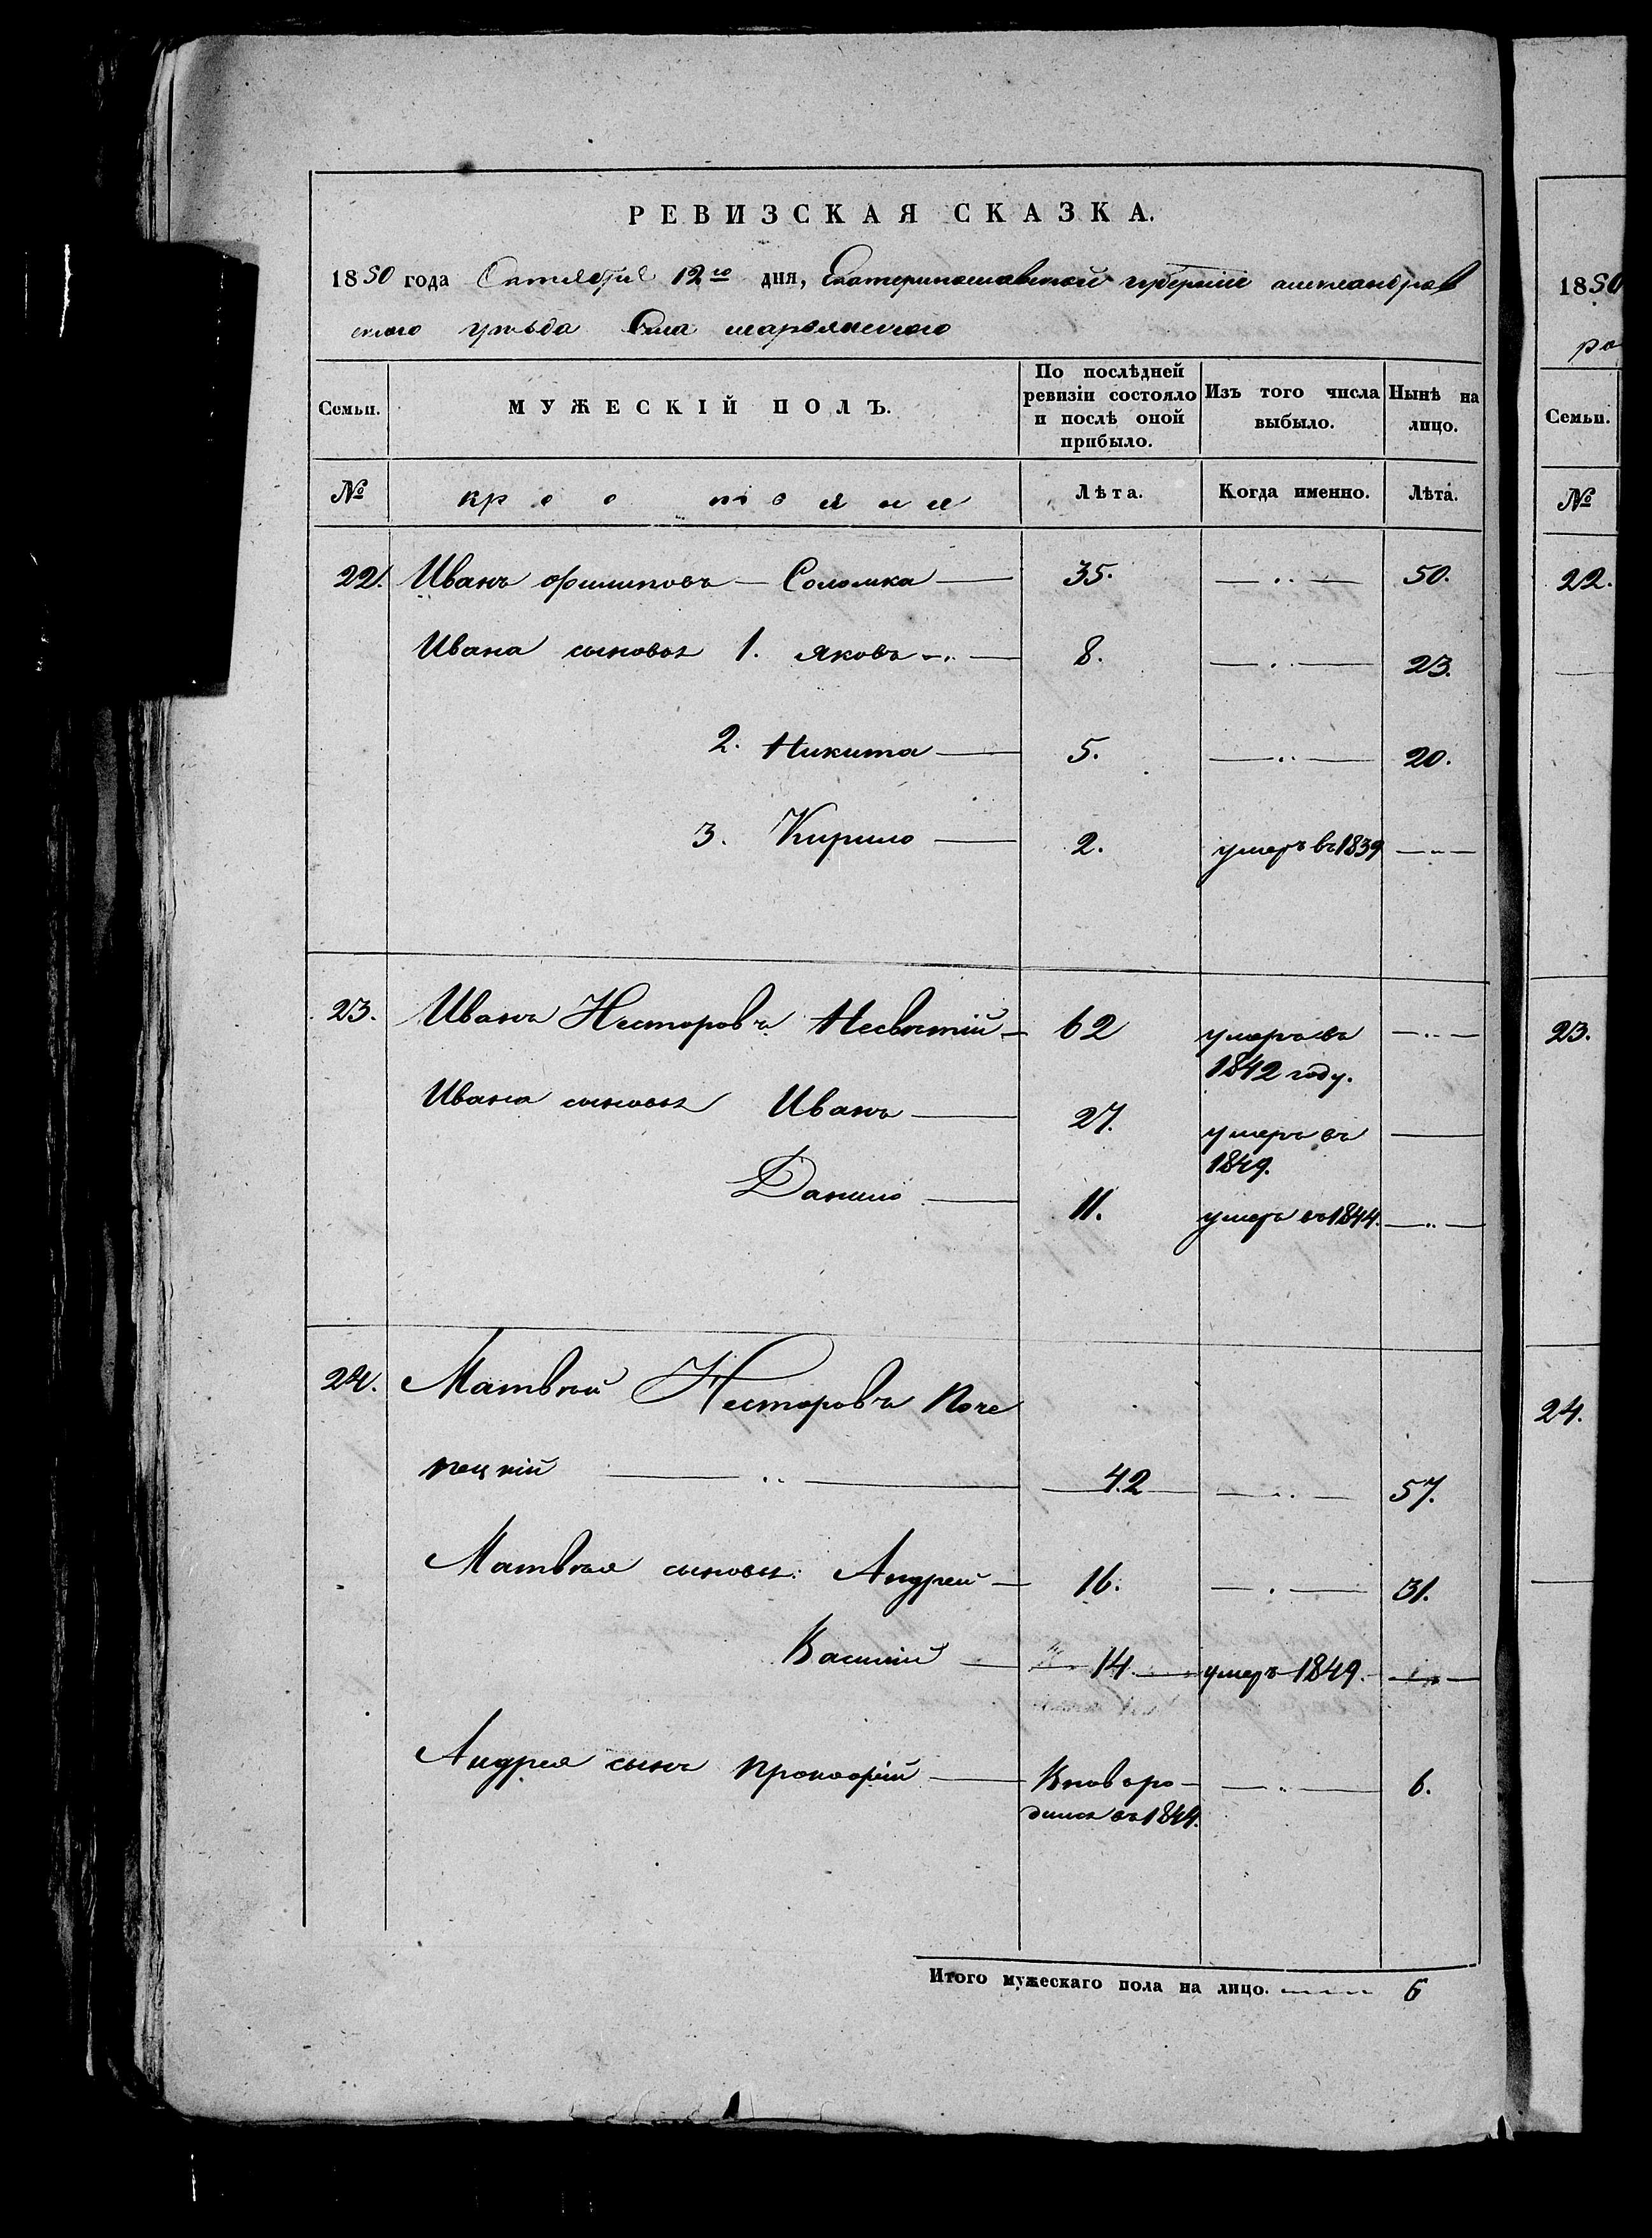 РЕВИЗСКАЯ СКАЗКА.
1850 года Октября 12го дня, Екатеринославской губернии александров
ского уѣзда Села
Семьи. МУЖЕСКІЙ ПОЛЪ. По послѣдней ревизіи состояло и послѣ оной прибыло. Изъ того числа выбыло. Нынѣ на лицо.
№ Лѣта. Когда именно. Лѣта.
22. Иванъ Филиповъ — Соломка — 35. — 50.
Ивана сыновья 1. Яковъ — 8. — 23.
2. Никита — 5. — 20.
3. Кирило — 2. умеръ въ 1839 —
23. Иванъ Несторовъ Несвятій — 62 умеръ въ —
1842 году.
Ивана сыновья Иванъ — 27. умеръ въ —
1849.
Данило — 11. умеръ въ 1844. —
24. Матвѣй Несторовъ
— 42 — 57.
Матвѣя сыновья: Андрей — 16. — 31.
Василій — 14 — умеръ 1849. —
Андрея сынъ Прокофій — Вновь ро- — 6.
дился въ 1844.
Итого мужескаго пола на лицо. 6
1850
ро
Семьи.
№
22.
23.
24.